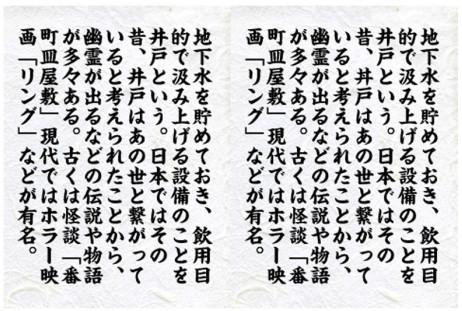 地下水を貯めておき、飲用目
的で汲み上げる設備のことを
井戸という。日本ではその
昔、井戸はあの世と繋がって
いると考えられたことから、
幽霊が出るなどの伝説や物語
が多々ある。古くは怪談「番
町皿屋敷」現代ではホラー映
画「リング」などが有名。
地下水を貯めておき、飲用目
的で汲み上げる設備のことを
井戸という。日本ではその
昔、井戸はあの世と繋がって
いると考えられたことから、
幽霊が出るなどの伝説や物語
が多々ある。古くは怪談「番
町皿屋敷」現代ではホラー映
画「リング」などが有名。